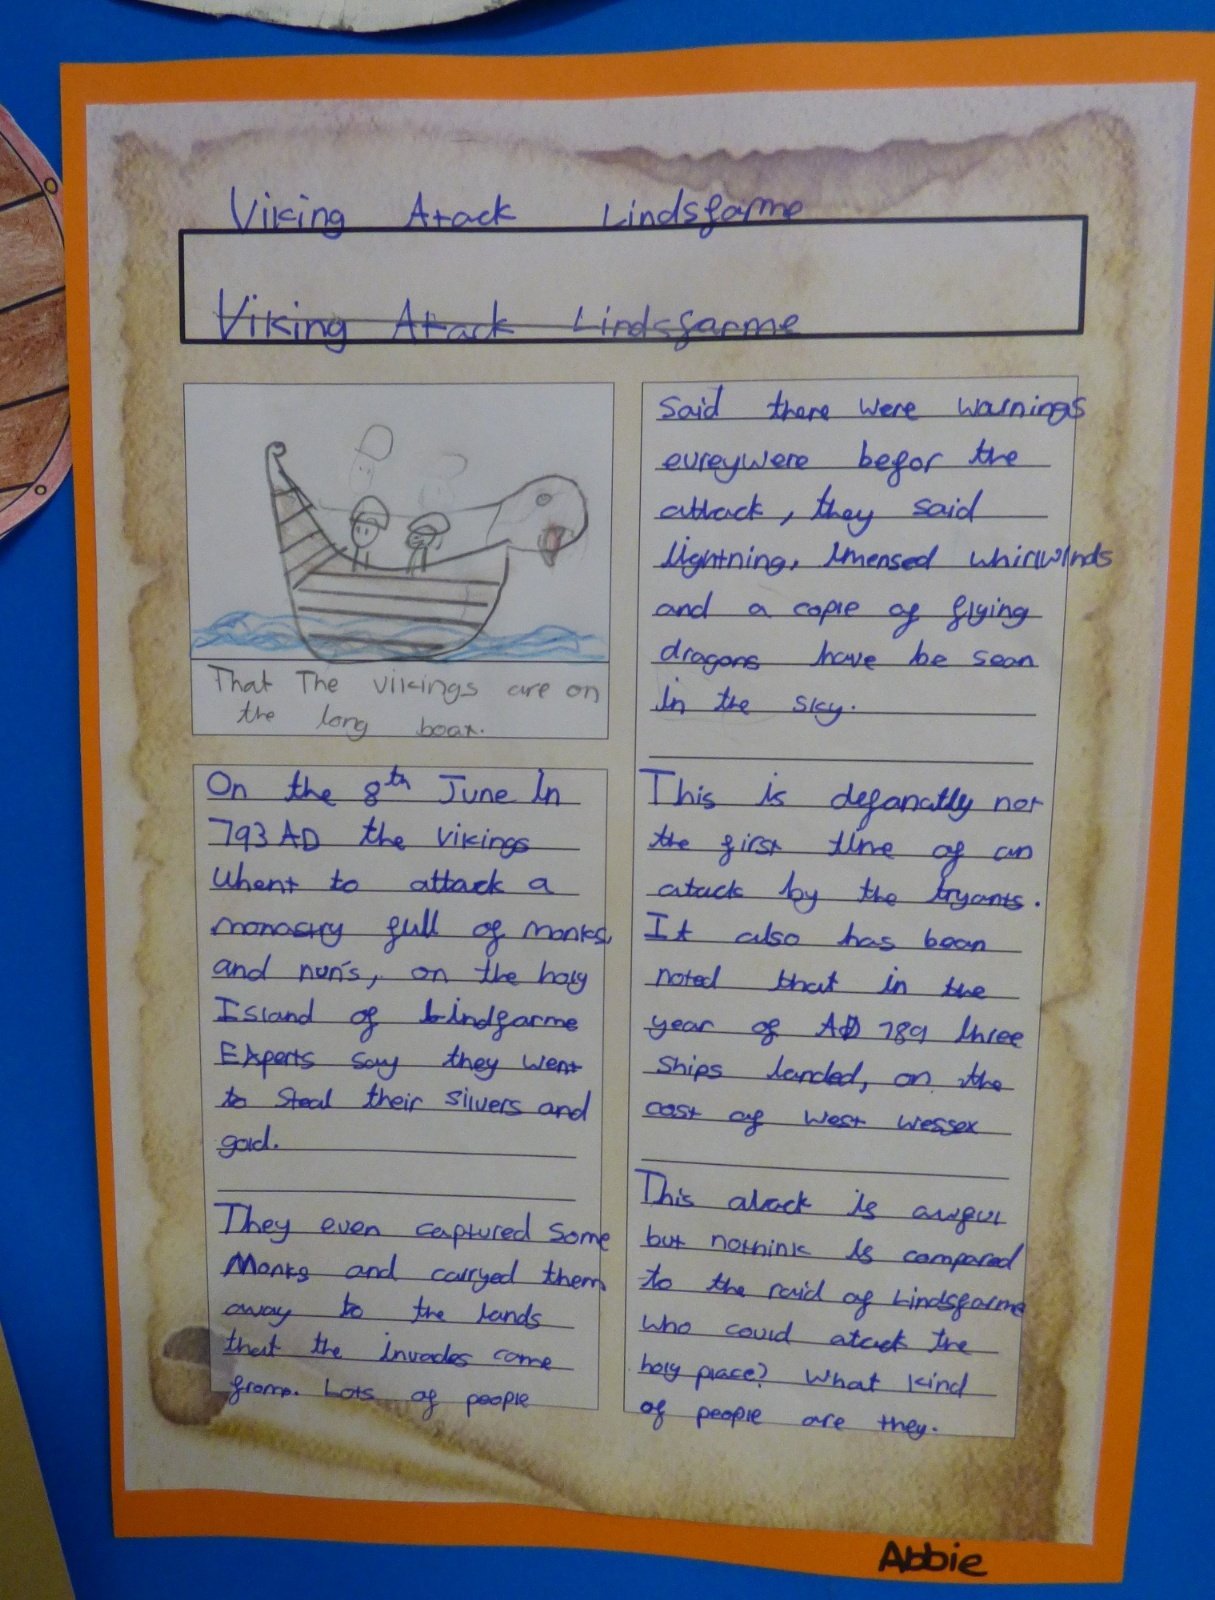 Viking Atack Lindsfarme
Viking Attack Lindsfarme
That The vikings are on
the long boat.
On the 8th June In
793 AD the vikings
Whent to attack a
monastry full of monks,
and nun's, on the holy
Island of Lindfarme
Experts say they went
to steal their silvers and
gold.
They even captured some
Monks and carryed them
away to the lands
that the invades come
frome. Lots of people
said there were warnings
evreywere befor the
attack, they said
lightning, Imensed whirlwinds
and a cople of flying
dragons have be sean
in the sky.
This is defanatly not
the first time of an
atack by the tryants.
It also has bean
noted that in the
year of AD 789 three
ships landed, on the
cost of west wessex
This atack is awful
but nothink is compared
to the raid of Lindsfarme
who could atack the
holy place? What kind
of people are they.
Abbie